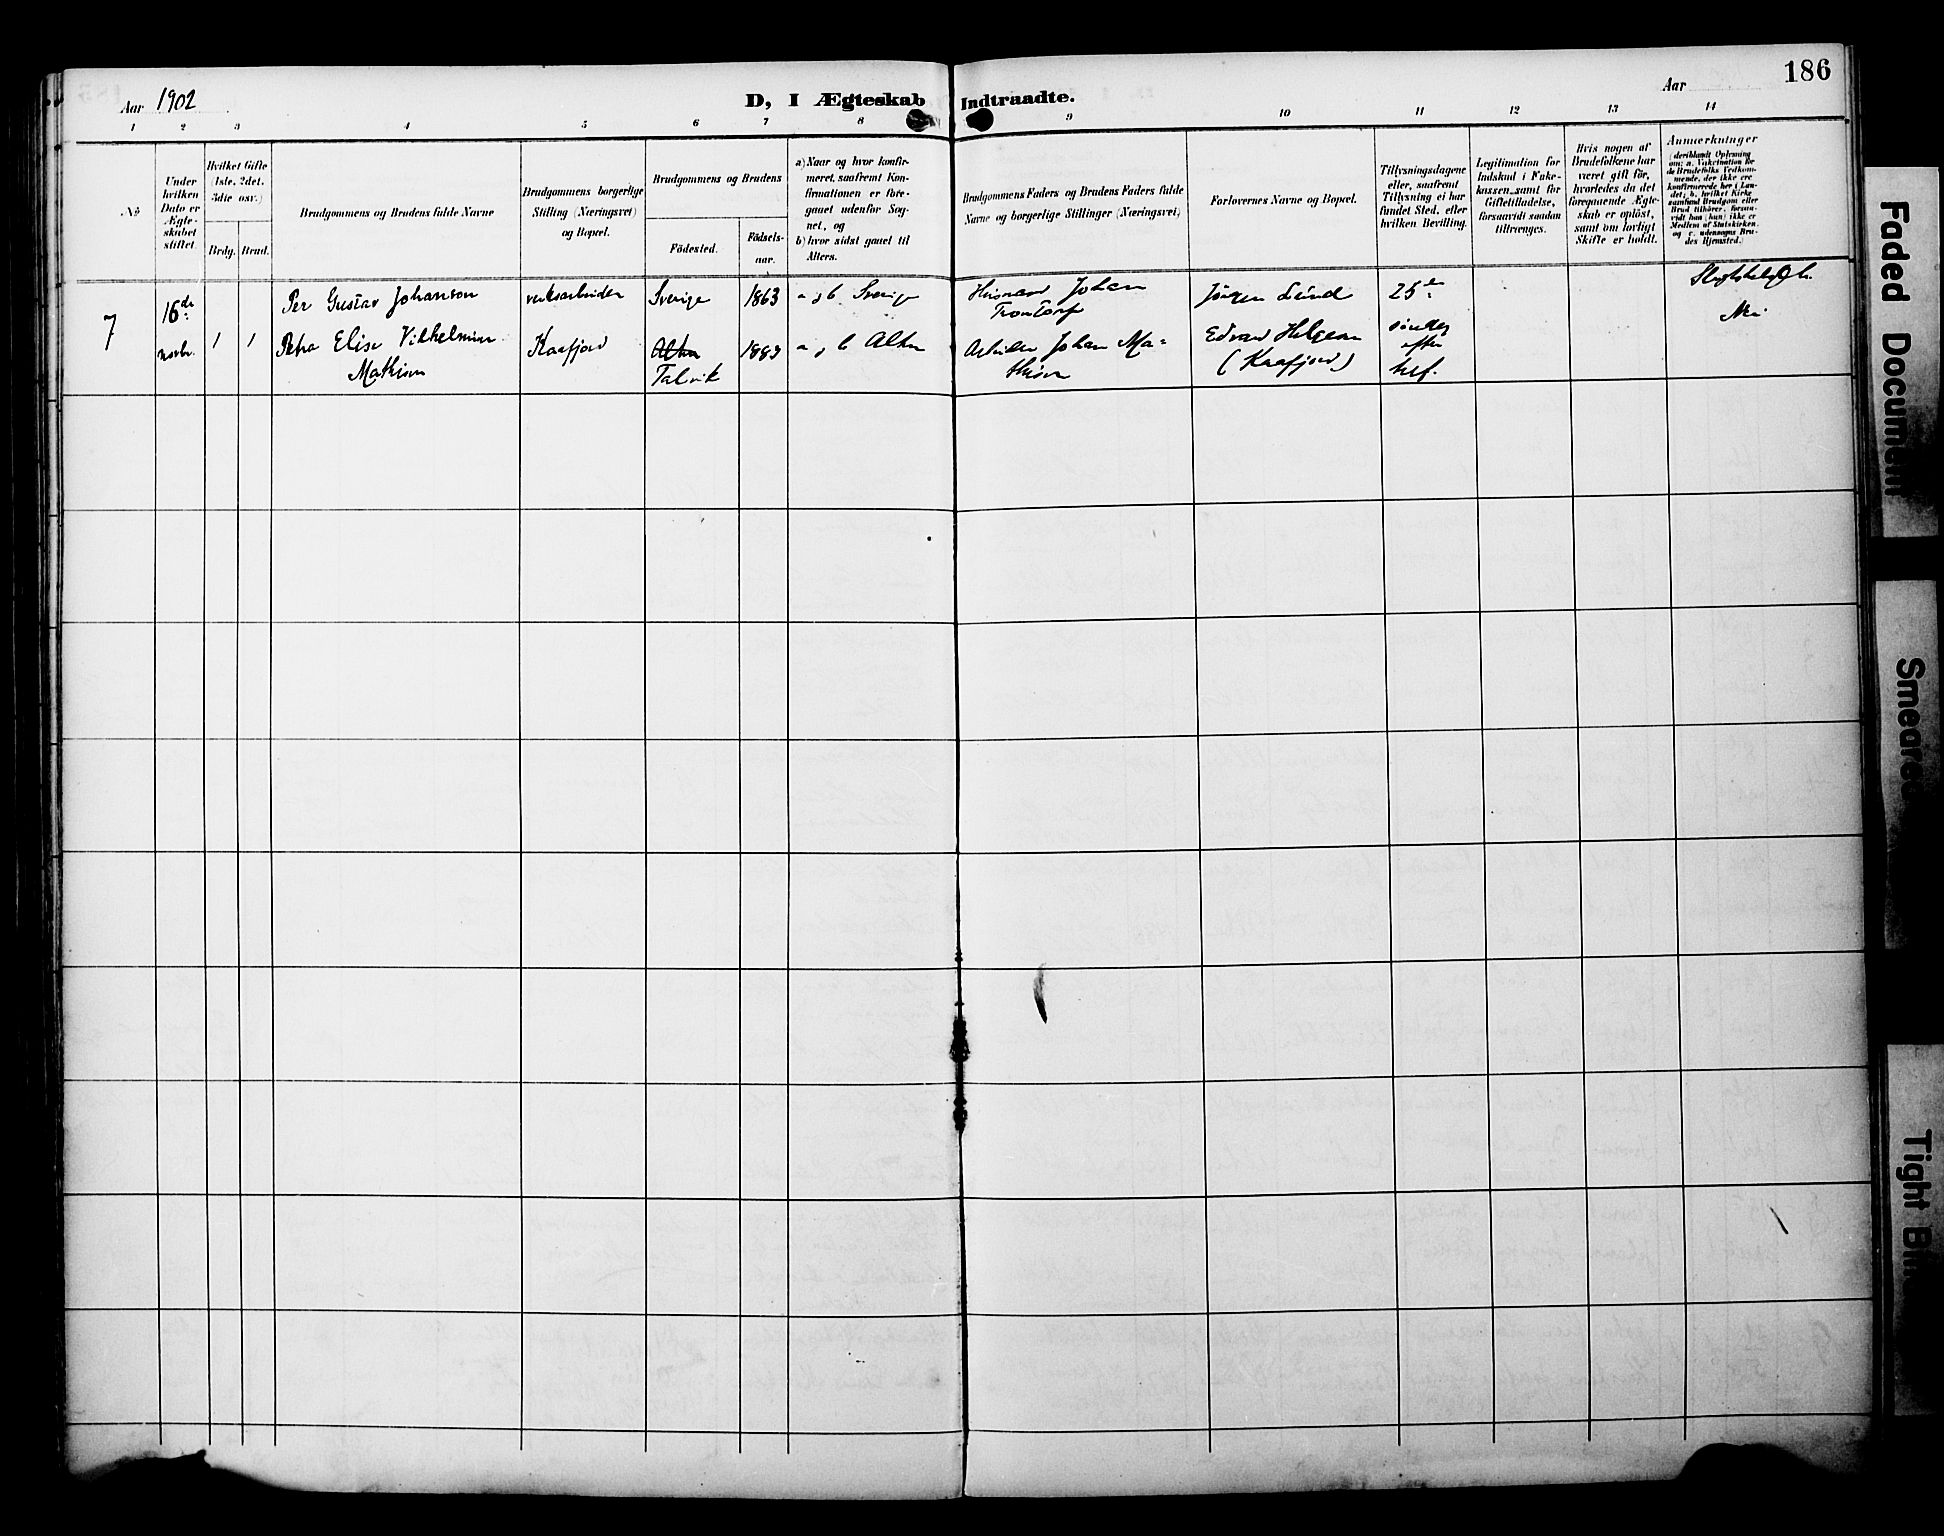 186
Aar 1902
D, I Ægteskab Indtraadte.
Aar
1 2 3 4 5 6 7 8 9 10 11 12 13 14
№
Under
hvilken
Dato er
Ægte-
skabet
stiftet.
Hvilket Gifte
(1ste, 2det,
3die osv.)
Brdg. Brud.
Brudgommens og Brudens fulde Navne
Brudgommens borgerlige
Stilling (Næringsvei)
og Bopæl.
Brudgommens og Brudens
Födested.
Födsels-
aar.
a) Naar og hvor konfir-
meret, saafremt Kon-
firmationen er fore-
gaaet udenfor Sog-
net, og
b) hvor sidst gaaet til
Alters.
Brudgommens Faders og Brudens Faders fulde
Navne og borgerlige Stillinger (Næringsvei)
Forlovernes Navne og Bopæl.
Tillysningsdagene
eller, saafremt
Tillysning ei har
fundet Sted, efter
hvilken Bevilling.
Legitimation for
Indskud i Enke-
kassen samt for
Giftetilladelse,
forsaavidt saadan
tiltrænges.
Hvis nogen af
Brudefolkene har
været gift før,
hvorledes da det
foregaaende Ægte-
skab er oplöst,
samt om lovligt
Skifte er holdt.
Anmerkninger
(deriblandt Oplysning
om: a. Vakcination for
de Brudefolks Vedkom-
mende, der ikke ere
konfirmerede her i Lan-
det; b. hvilket Kirke
samfund Brudgom eller
Brud tilhörer, forsaa-
vidt han (hun) ikke er
Medlem af Statskirken,
og c. udensogns Bru-
des Hjemsted.)
7
16de
novbr.
1 1
Per Gustav Johanson
Petra Elise Vilhelmine
Mathisen
verksarbeider
Kaafjord
Sverige
Alten
Talvik
1863
1883
a og b Sverige
a og b Alten
Husmand Johan
Arbeider Johan Ma-
thisen
Jørgen Lund
Edvard Helgesen
(Kaafjord)
25de
søndag
efter
tref.
Nei
Faded Document
Smeared
Tight Bin